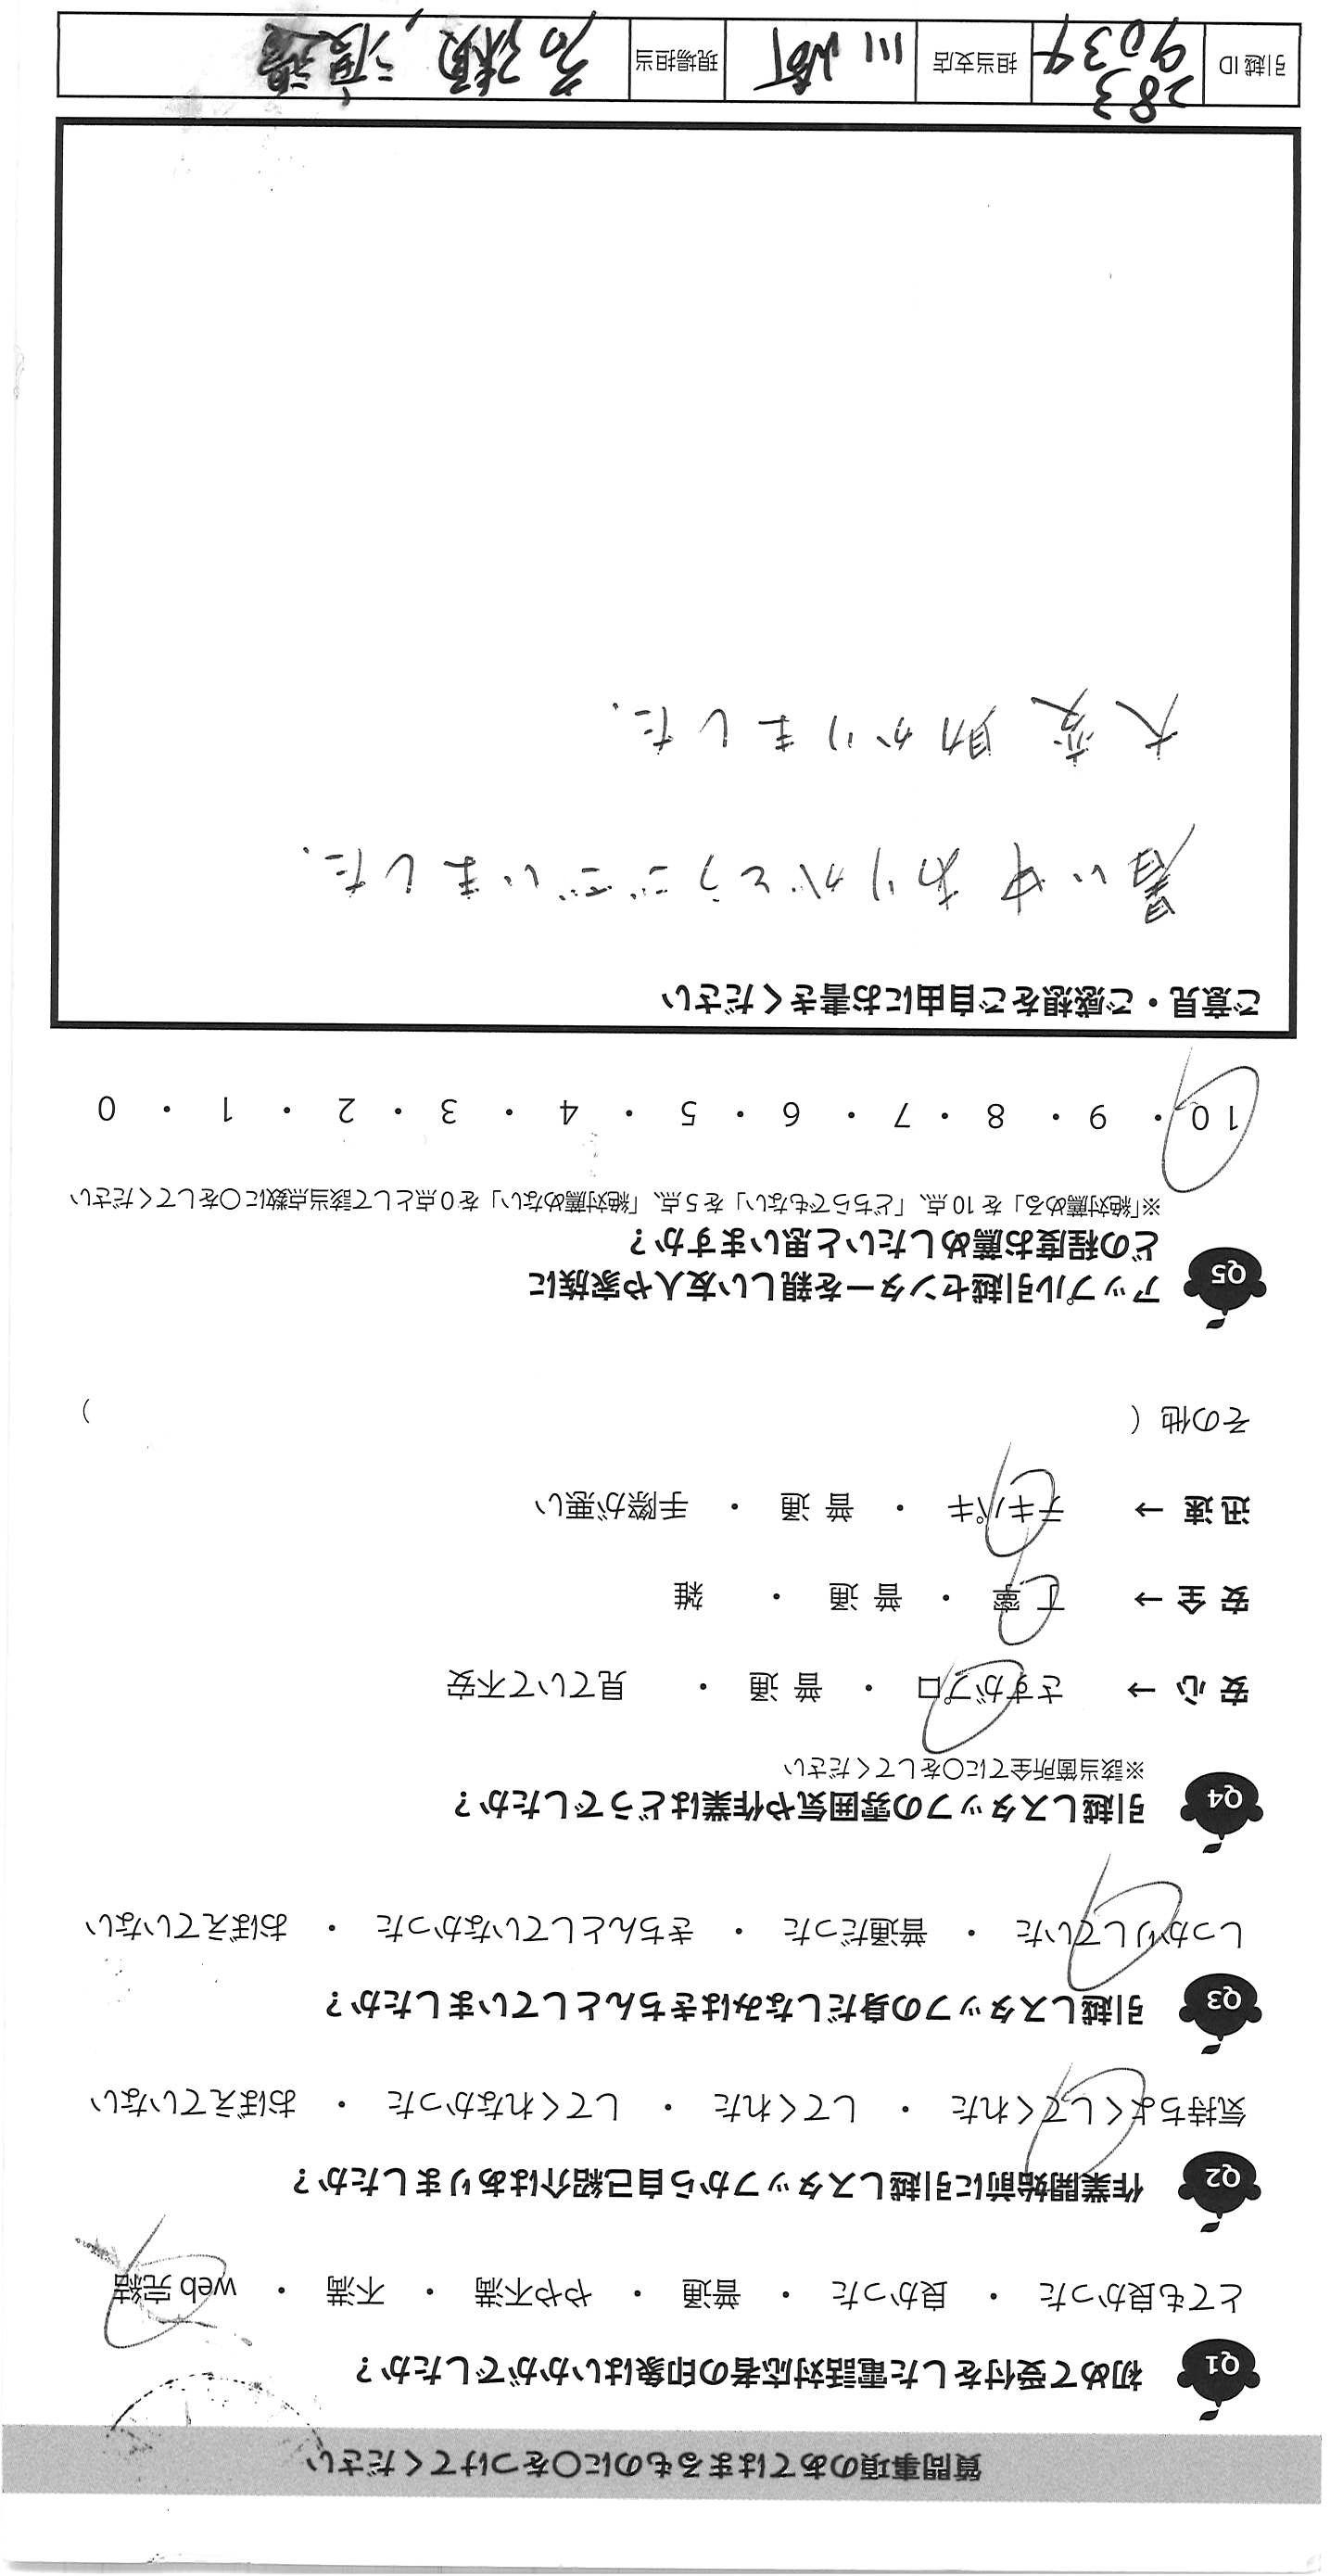 質問事項のあてはまるものに〇をつけてください
Q1 初めて受付をした電話対応者の印象はいかがでしたか？
とても良かった ・ 良かった ・ 普通 ・ やや不満 ・ 不満 ・ web 完結
Q2 作業開始前に引越しスタッフから自己紹介はありましたか？
気持ちよくしてくれた ・ してくれた ・ してくれなかった ・ おぼえていない
Q3 引越しスタッフの身だしなみはきちんとしていましたか？
しっかりしていた ・ 普通だった ・ きちんとしていなかった ・ おぼえていない
Q4 引越しスタッフの雰囲気や作業はどうでしたか？
※該当箇所全てに〇をしてください
安 心 → さすがプロ ・ 普 通 ・ 見ていて不安
安 全 → 丁 寧 ・ 普 通 ・ 雑
迅 速 → テキパキ ・ 普 通 ・ 手際が悪い
その他（ ）
Q5 アップル引越センターを親しい友人や家族に
どの程度お薦めしたいと思いますか？
※「絶対薦める」を 10 点、「どちらでもない」を 5 点、「絶対薦めない」を 0 点として該当点数に〇をしてください
10 ・ 9 ・ 8 ・ 7 ・ 6 ・ 5 ・ 4 ・ 3 ・ 2 ・ 1 ・ 0
ご意見・ご感想をご自由にお書きください
暑い中ありがとうございました.
大変助かりました.
引越 ID 283
9034 担当支店 川崎 現場担当 渡邊